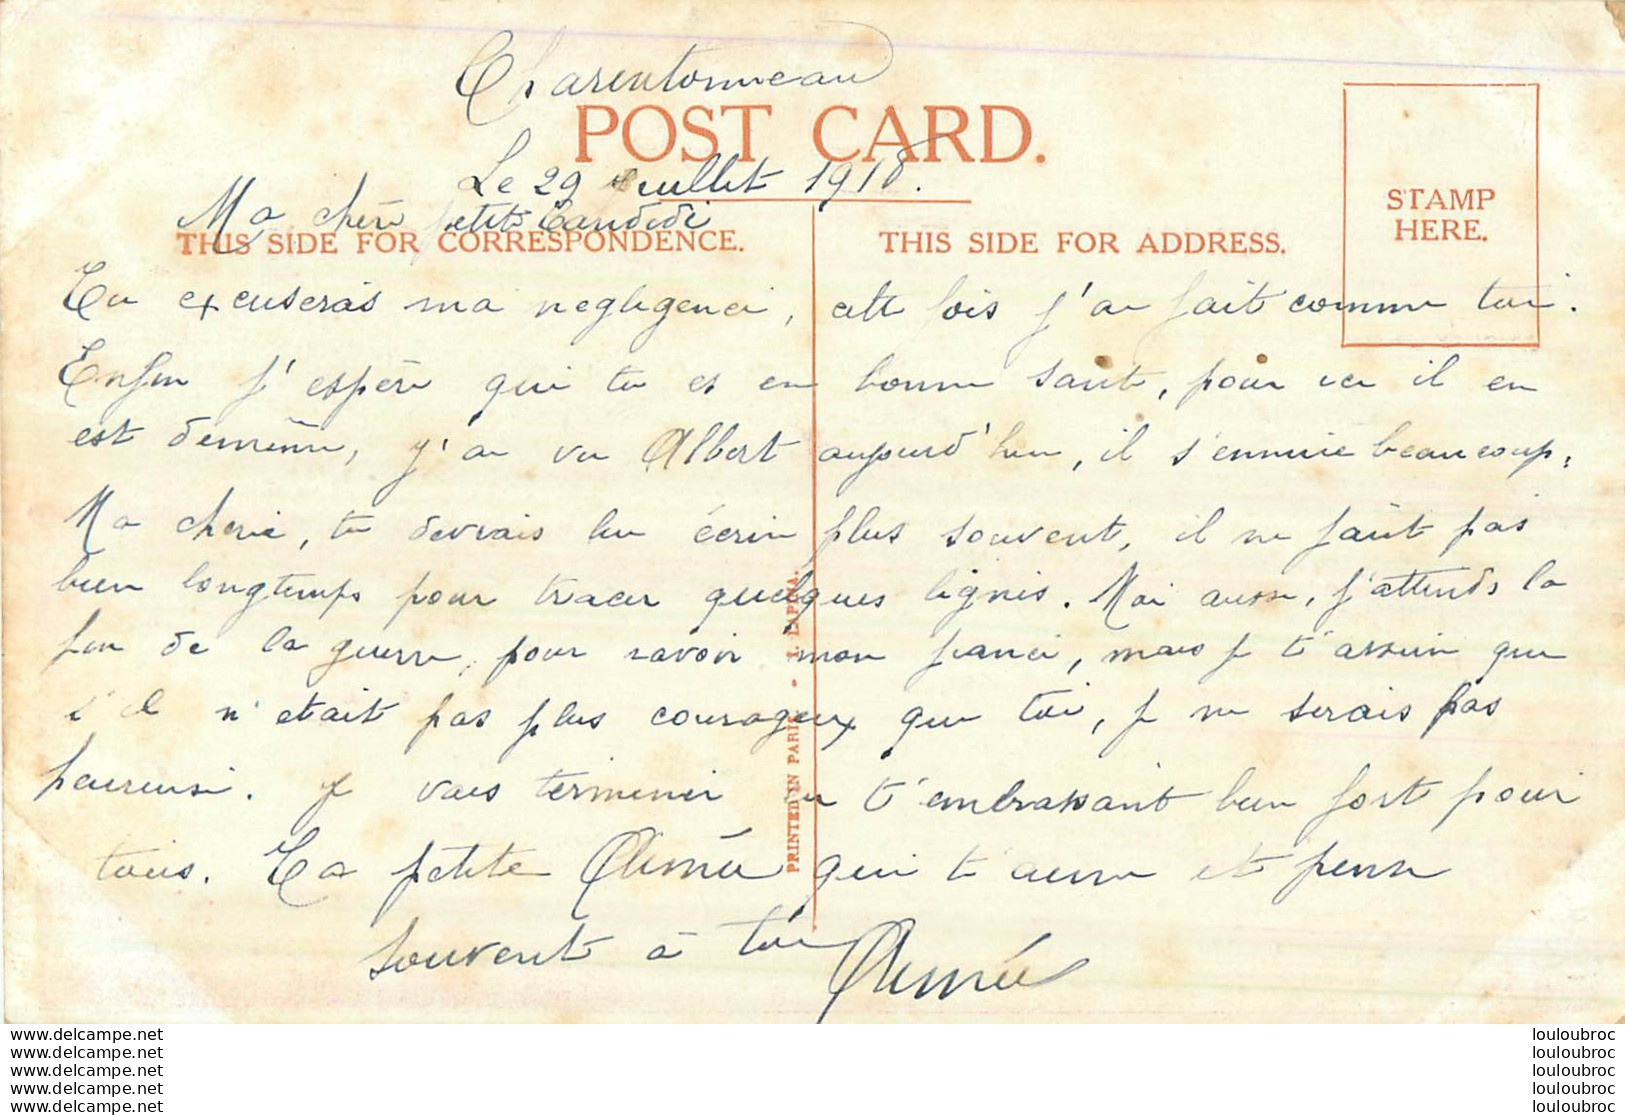 Charentonneau
POST CARD.
Le 29 Juillet 1918.
Ma chère petite Candidi
THIS SIDE FOR CORRESPONDENCE.
THIS SIDE FOR ADDRESS.
STAMP
HERE.
Tu excuseras ma negligence, cette fois j'ai fait comme toi.
Enfin j'espère que tu es en bonne santé, pour ici il en
est de même, j'ai vu Albert aujourd'hui, il s'ennuie beaucoup,
Ma cherie, tu devrais lui écrire plus souvent, il ne faut pas
bien longtemps pour tracer quelques lignes. Moi aussi, j'attends la
fin de la guerre, pour ravoir mon fiancé, mais je t'assure que
s'il n'etait pas plus courageux que toi, je ne serais pas
heureuse. Je vais terminer en t'embrassant bien fort pour
tous. Ta petite Aimée qui t'aime et pense
souvent à toi Aimée
PRINTED IN PARIS - I. LAPINA.
www.delcampe.net
www.delcampe.net
www.delcampe.net
www.delcampe.net
www.delcampe.net
louloubroc
louloubroc
louloubroc
louloubroc
louloubroc